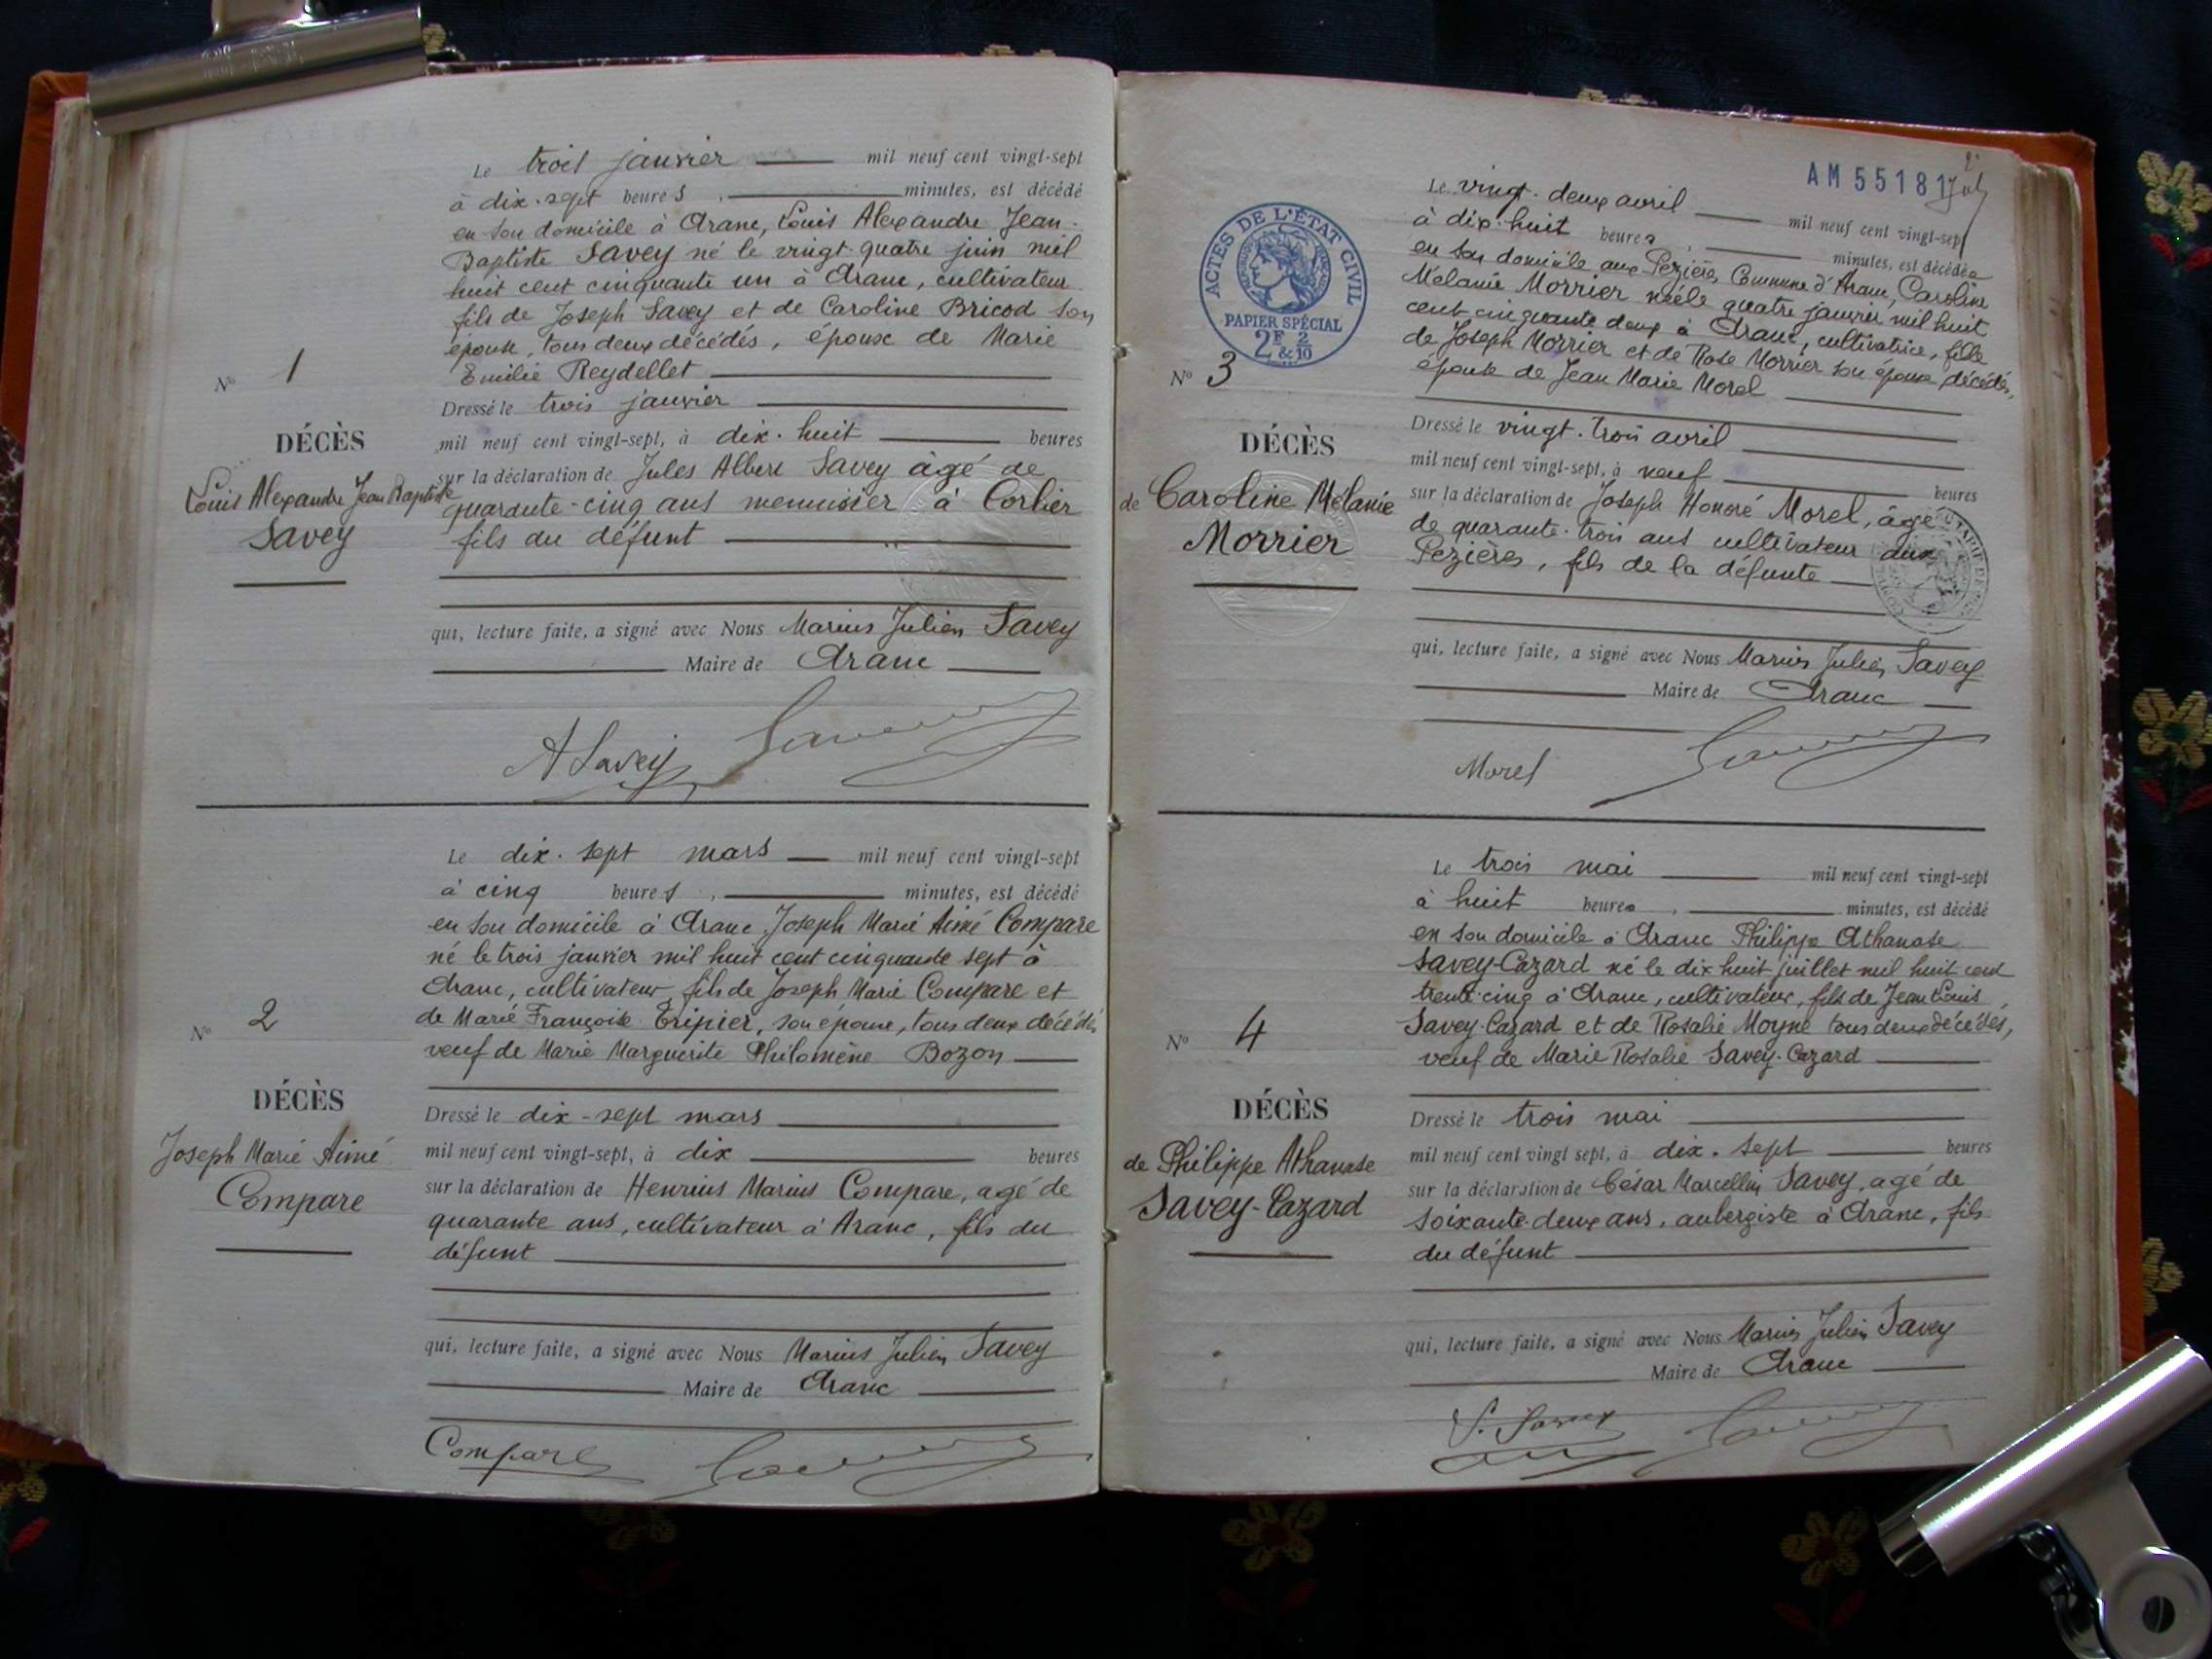 Le trois janvier mil neuf cent vingt-sept
à dix-sept heures, minutes, est décédé
en son domicile à Aranc, Louis Alexandre Jean-
Baptiste Savey né le vingt-quatre juin mil
huit cent cinquante un à Aranc, cultivateur
fils de Joseph Savey et de Caroline Bricod son
épouse, tous deux décédés, époux de Marie
Emilie Reydellet
Dressé le trois janvier
mil neuf cent vingt-sept, à dix-huit heures
sur la déclaration de Jules Albert Savey âgé de
quarante-cinq ans menuisier à Corlier
fils du défunt
qui, lecture faite, a signé avec Nous Marius Julien Savey
Maire de Aranc
A Savey
N° 1
DÉCÈS
Louis Alexandre Jean Baptiste
Savey
Le dix-sept mars mil neuf cent vingt-sept
à cinq heures, minutes, est décédé
en son domicile à Aranc Joseph Marie Aimé Compare
né le trois janvier mil huit cent cinquante sept à
Aranc, cultivateur, fils de Joseph Marie Compare et
de Marie Françoise Tripier, son épouse, tous deux décédés
veuf de Marie Marguerite Philomène Bozon
Dressé le dix-sept mars
mil neuf cent vingt-sept, à dix heures
sur la déclaration de Henrius Marius Compare, agé de
quarante ans, cultivateur à Aranc, fils du
défunt
qui, lecture faite, a signé avec Nous Marius Julien Savey
Maire de Aranc
Compare
N° 2
DÉCÈS
Joseph Marie Aimé
Compare
AM 55181
ACTES DE L'ÉTAT CIVIL
PAPIER SPÉCIAL
2F & 2/10
Le vingt-deux avril mil neuf cent vingt-sept
à dix-huit heures, minutes, est décédée
en son domicile aux Pezières Commune d'Aranc, Caroline
Mélanie Morrier née le quatre janvier mil huit
cent cinquante deux à Aranc, cultivatrice, fille
de Joseph Morrier et de Rose Morrier son épouse décédés,
épouse de Jean Marie Morel
Dressé le vingt-trois avril
mil neuf cent vingt-sept, à neuf heures
sur la déclaration de Joseph Honoré Morel, âgé
de quarante-trois ans cultivateur aux
Pezières, fils de la défunte
qui, lecture faite, a signé avec Nous Marius Julien Savey
Maire de Aranc
Morel
N° 3
DÉCÈS
de Caroline Mélanie
Morrier
Le trois mai mil neuf cent vingt-sept
à huit heures, minutes, est décédé
en son domicile à Aranc Philippe Athanase
Savey-Cazard né le dix huit juillet mil huit cent
trente-cinq à Aranc, cultivateur, fils de Jean Louis
Savey-Cazard et de Rosalie Moyne tous deux décédés,
veuf de Marie Rosalie Savey-Cazard
Dressé le trois mai
mil neuf cent vingt sept, à dix-sept heures
sur la déclaration de César Marcellin Savey, agé de
soixante-deux ans, aubergiste à Aranc, fils
du défunt
qui, lecture faite, a signé avec Nous Marius Julien Savey
Maire de Aranc
N° 4
DÉCÈS
de Philippe Athanase
Savey-Cazard